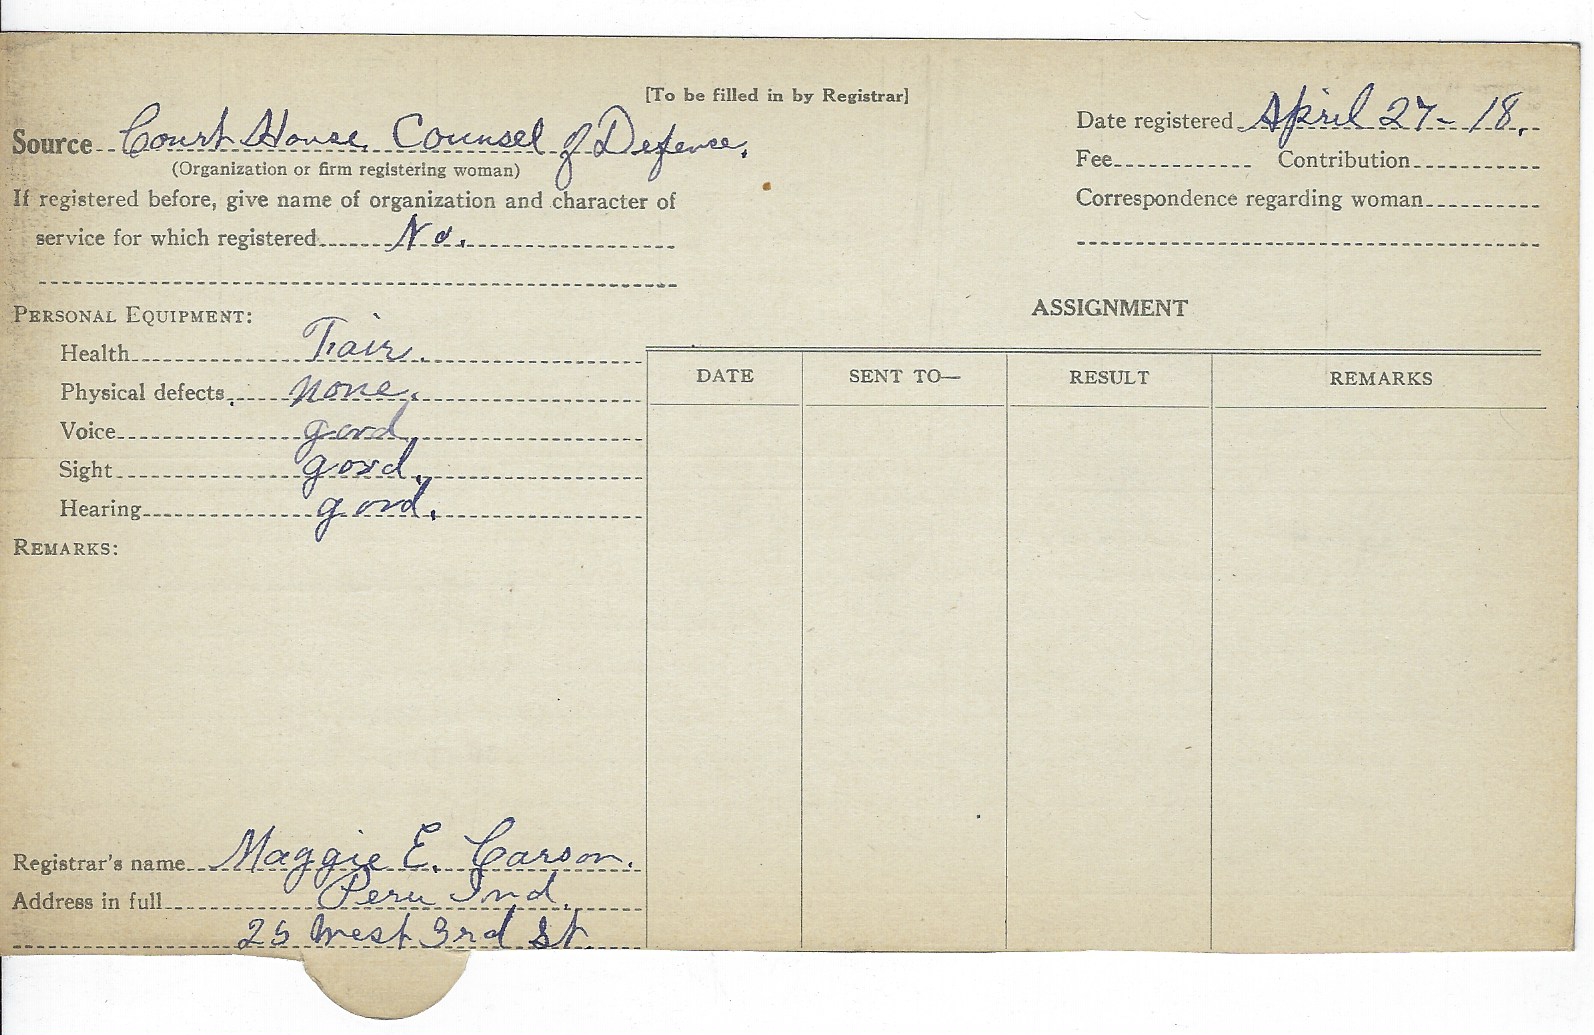 [To be filled in by Registrar]
Source Court House Counsel of Defense.
(Organization or firm registering woman)
If registered before, give name of organization and character of
service for which registered No.
Date registered April 27-18.
Fee Contribution
Correspondence regarding woman
PERSONAL EQUIPMENT:
Health Fair.
Physical defects none.
Voice good.
Sight good.
Hearing good.
REMARKS:
ASSIGNMENT
DATE SENT TO— RESULT REMARKS
Registrar's name Maggie E. Carson.
Address in full Peru Ind.
25 West 3rd St.